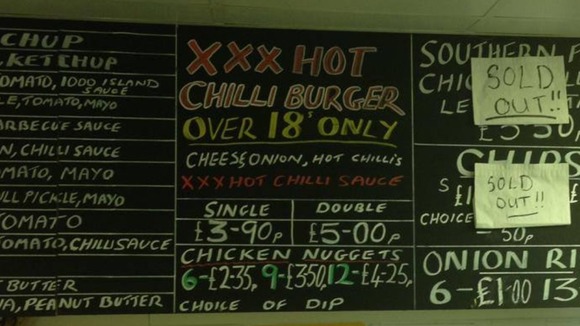 CHUP
, KETCHUP
OMATO, 1000 ISLAND
SAUCE
LE, TOMATO, MAYO
ARBECUE SAUCE
N, CHILLI SAUCE
MATO, MAYO
ULL PICKLE, MAYO
TOMATO
TOMATO, CHILLI SAUCE
BUTTER
A, PEANUT BUTTER
XXX HOT
CHILLI BURGER
OVER 18s ONLY
CHEESE & ONION, HOT CHILLI'S
XXX HOT CHILLI SAUCE
SINGLE DOUBLE
£3-90p £5-00p
CHICKEN NUGGETS
6-£2-35, 9-£3.50, 12-£4-25p
CHOICE OF DIP
SOUTHERN F
CHIC
LE
SOLD
OUT!!
CHIPS
S £1
SOLD
OUT!!
CHOICE
50p
ONION RI
6-£1-00 13